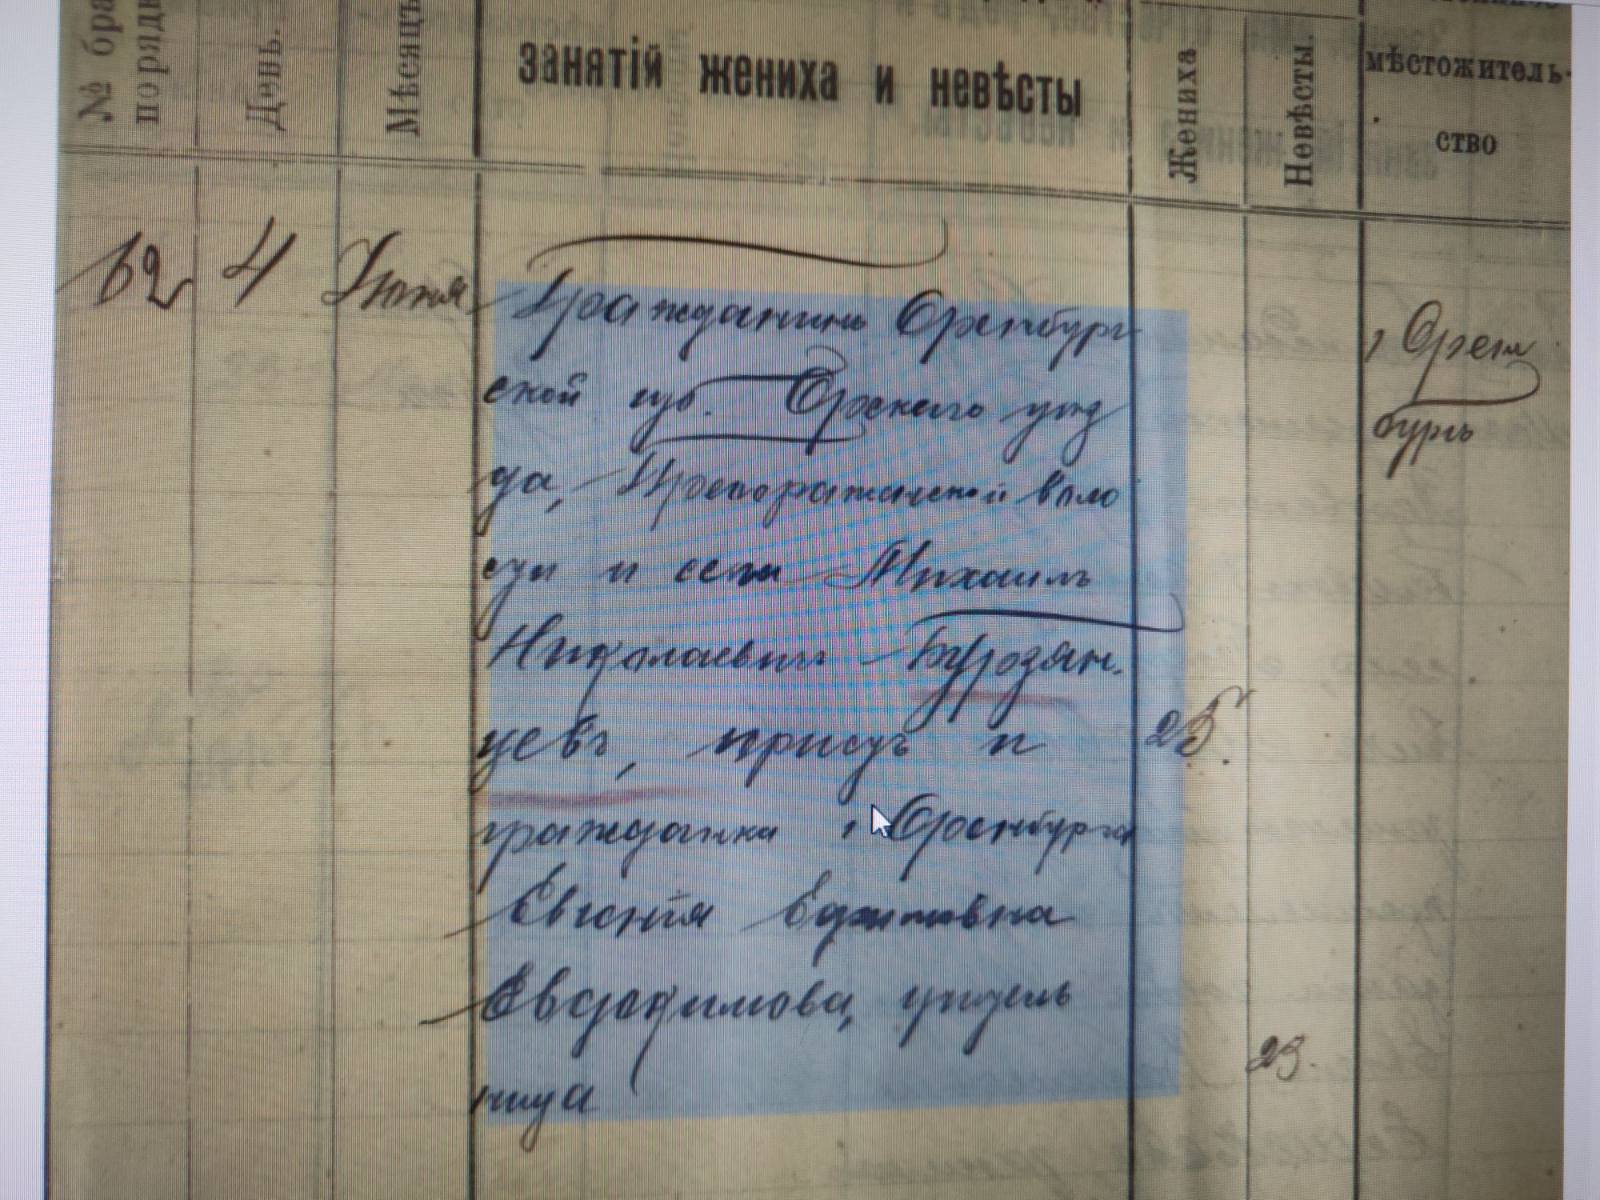 № бра
порядк
День.
Мѣсяцъ
занятій жениха и невѣсты
Жениха
Невѣсты.
мѣстожитель-
ство
62 4 Июня Гражданинъ Оренбург
ской губ. Орскаго уѣз
да, воло
сти и села Михаилъ
Николаевичъ Бурзян.
цевъ, и
гражданка г. Оренбурга
Евгенія
Евдокимова, учитель
ница
25
23.
г. Орен
бургъ